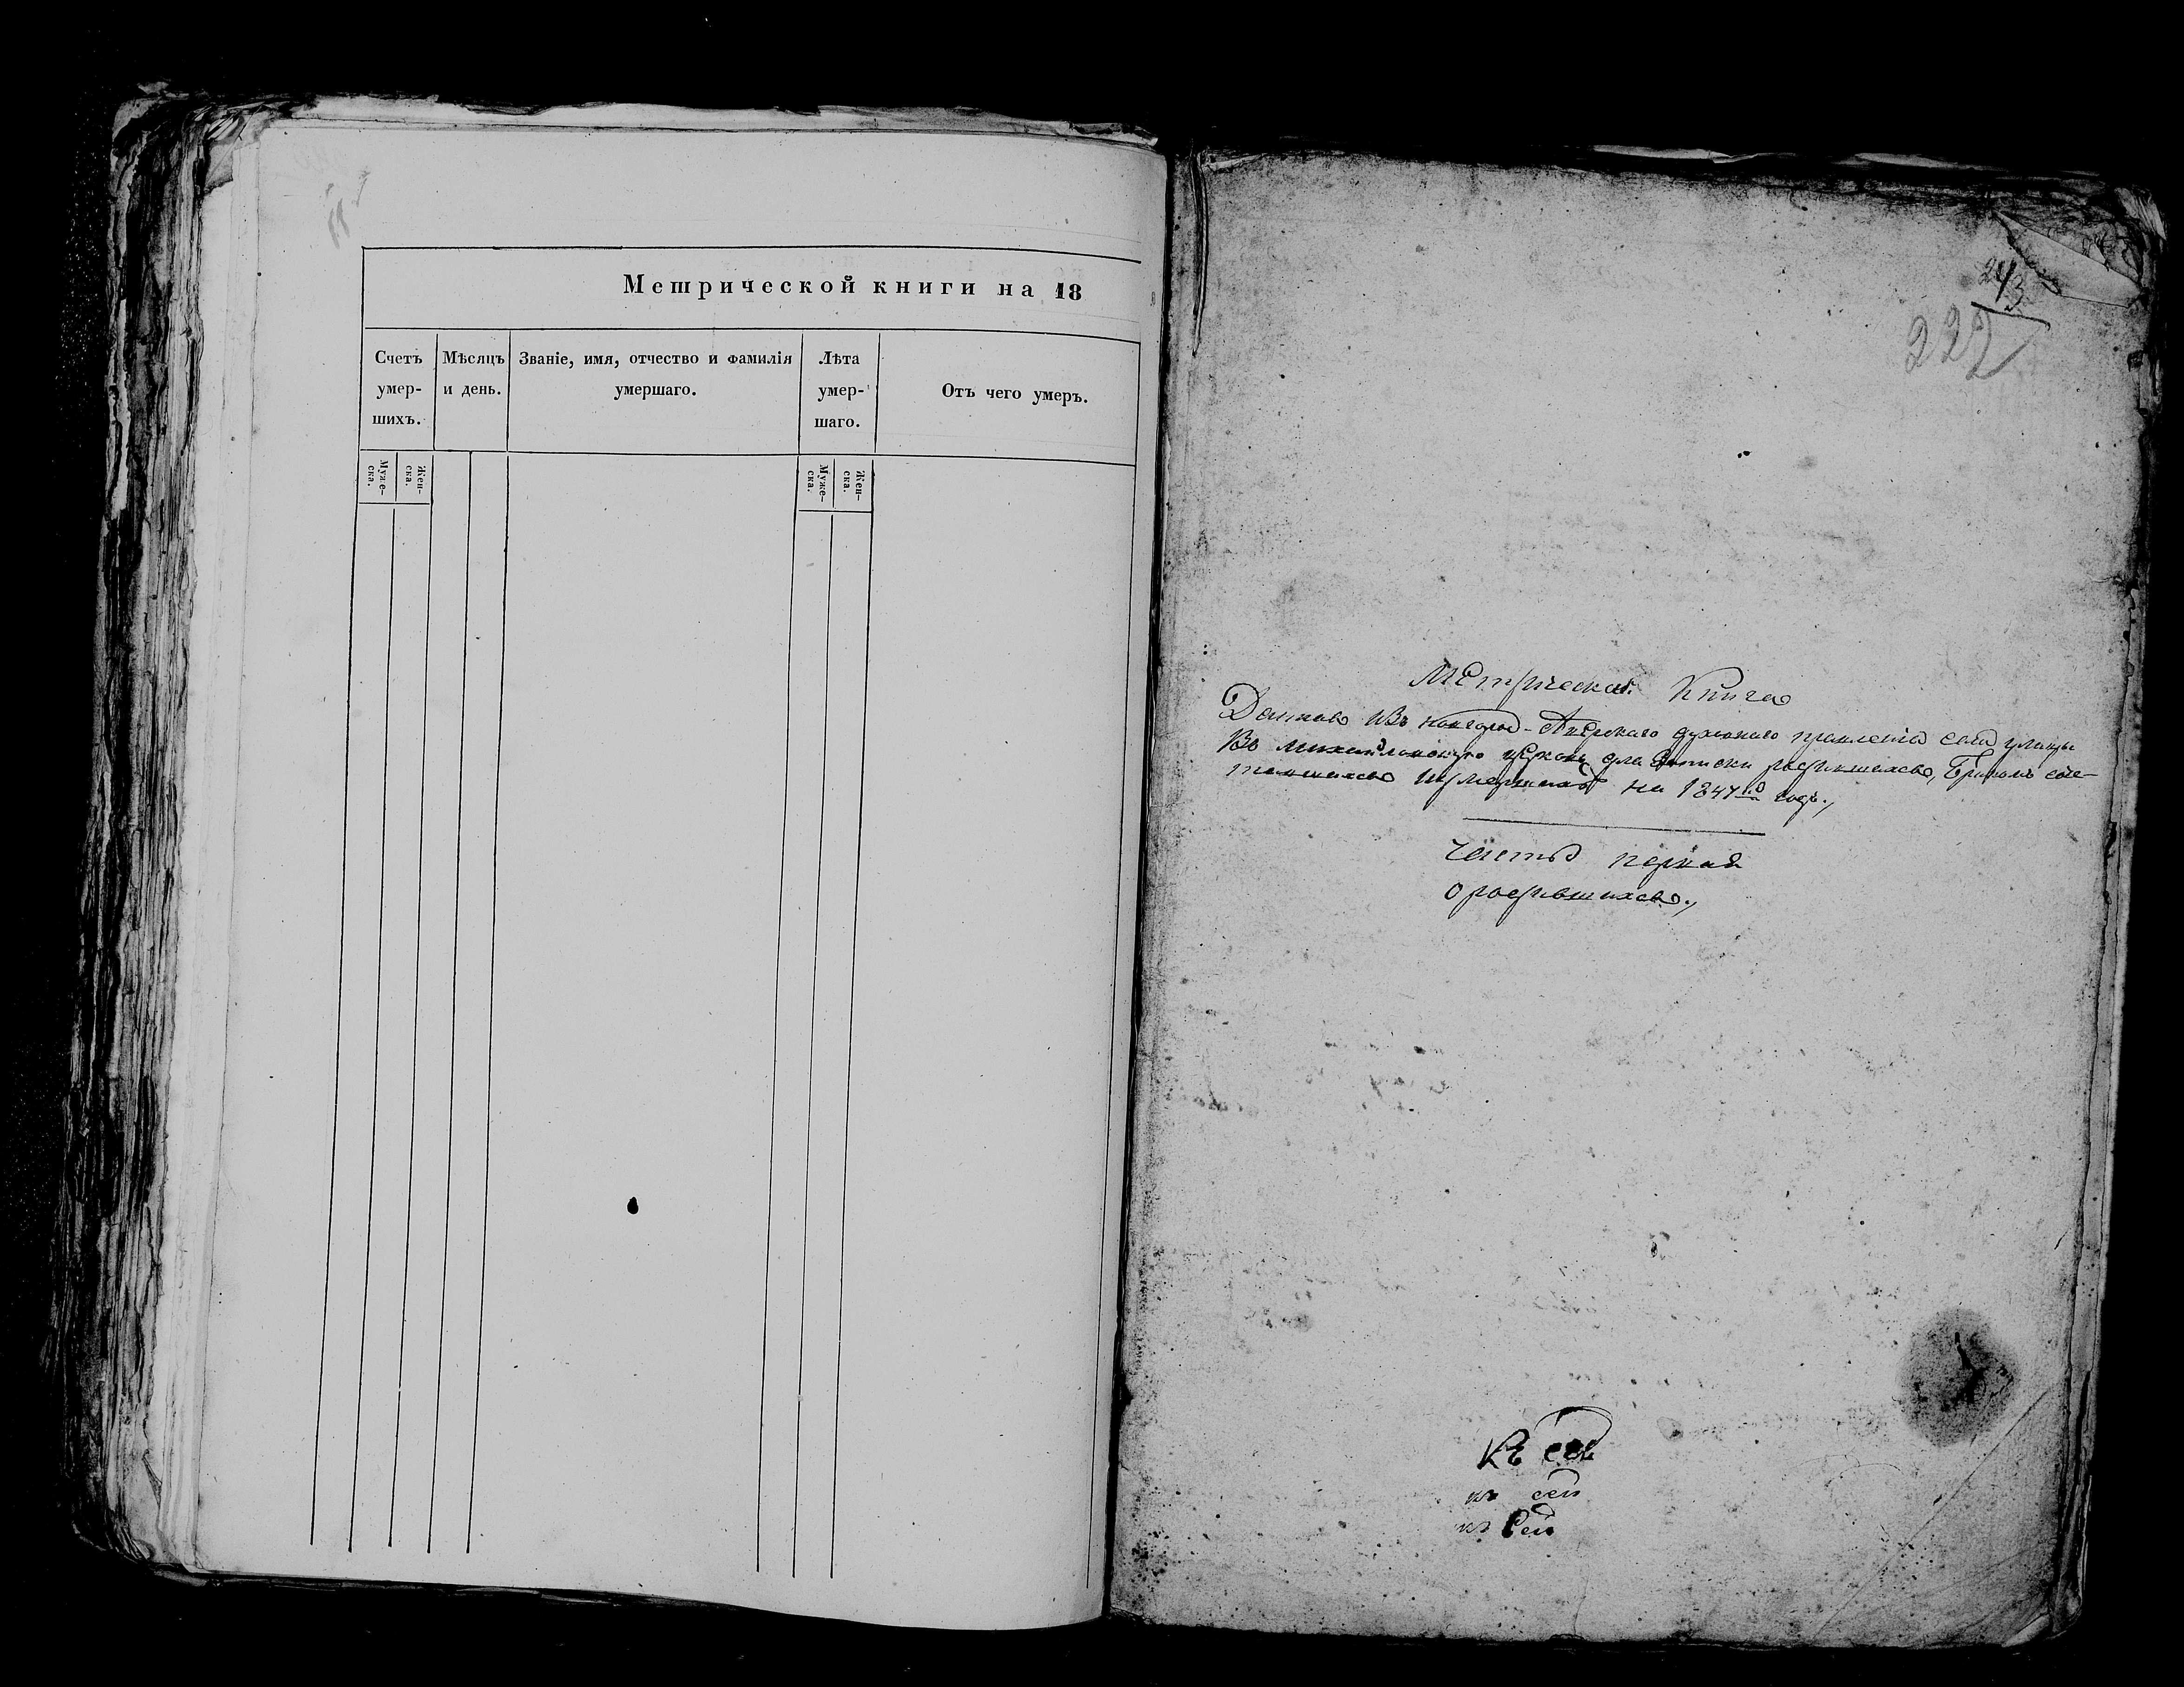 Метрической книги на 18
Счетъ умер-шихъ.
Мѣсяцъ и день.
Званіе, имя, отчество и фамилія умершаго.
Лѣта умер-шаго.
Отъ чего умеръ.
Муже-ска.
Жен-ска.
Муже-ска.
Жен-ска.
243
222
Метрическая Книга
Данная изъ духовнаго правленія села
въ Михайловскую церковь для записки родившихся, бракомъ соче-
тавшихся и умершихъ на 1847й годъ.,
Часть первая
о родившихся.,
Къ сей
къ сей
къ сей